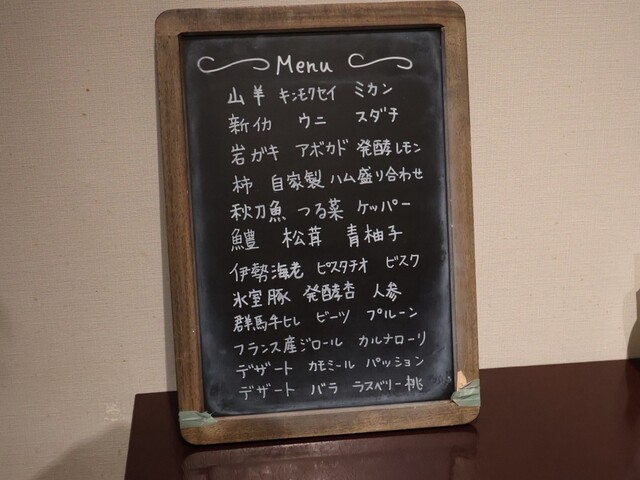 Menu
山羊 キンモクセイ ミカン
新イカ ウニ スダチ
岩ガキ アボカド 発酵レモン
柿 自家製ハム盛り合わせ
秋刀魚 つる菜 ケッパー
鱧 松茸 青柚子
伊勢海老 ピスタチオ ビスク
氷室豚 発酵杏 人参
群馬牛ヒレ ビーツ プルーン
フランス産ジロール カルナローリ
デザート カモミール パッション
デザート バラ ラズベリー桃